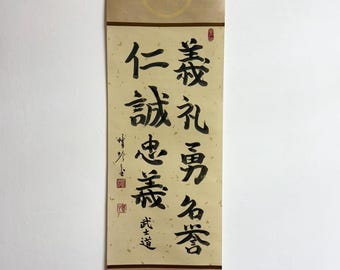 義礼勇名誉
仁誠忠義
武士道